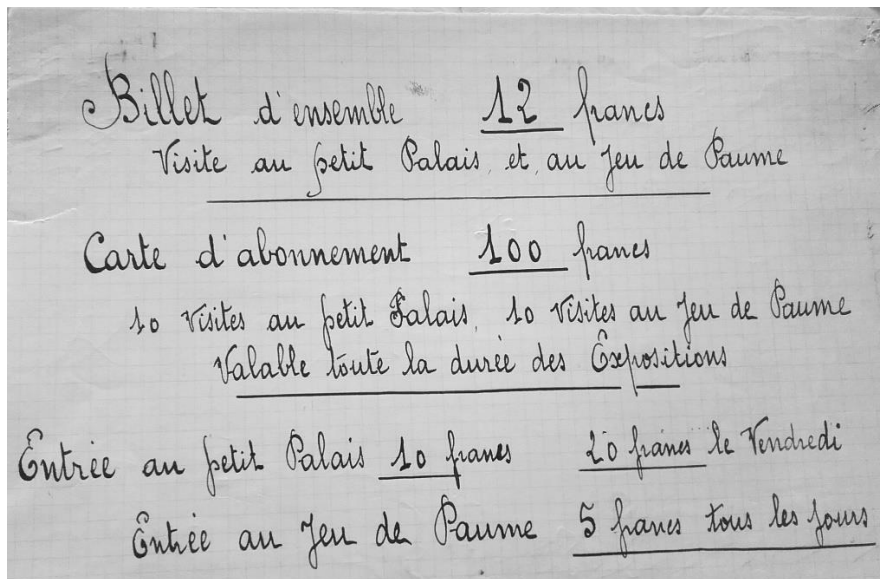 Billet d'ensemble 12 francs
Visite au petit Palais, et, au Jeu de Paume
Carte d'abonnement 100 francs
10 Visites au petit Palais, 10 Visites au Jeu de Paume
Valable toute la durée des Expositions
Entrée au petit Palais 10 francs 20 francs le Vendredi
Entrée au Jeu de Paume 5 francs tous les jours